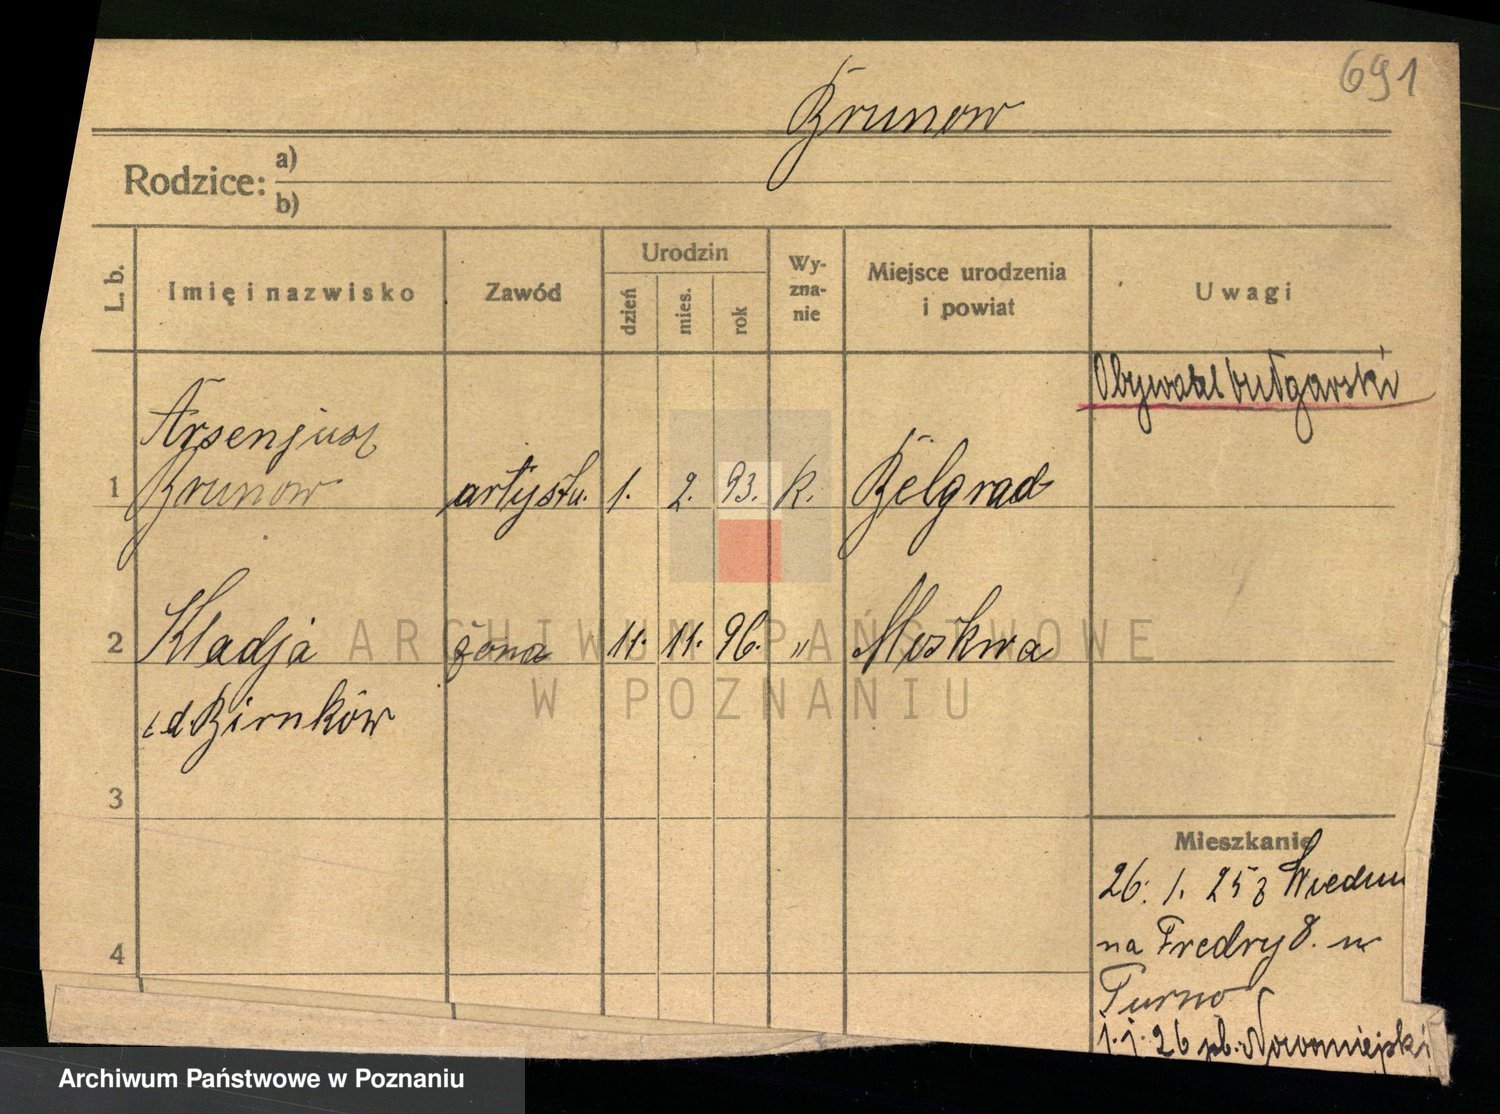 691
Brunow
Rodzice: a)
b)
L. b.
Imię i nazwisko
Zawód
Urodzin
dzień
mies.
rok
Wy-
zna-
nie
Miejsce urodzenia
i powiat
Uwagi
Obywatel bułgarski
Arsenjusz
1 Brunow artystu. 1. 2. 93. k. Belgrad
2 Kladja żona 11. 11. 96. " Moskwa
z d. Birnków
3
Mieszkanie
26. 1. 25 z Wiednia
na Fredry 8. u
4
Turno
1. 1. 26 pl. Nowomiejski
ARCHIWUM PAŃSTWOWE
W POZNANIU
Archiwum Państwowe w Poznaniu